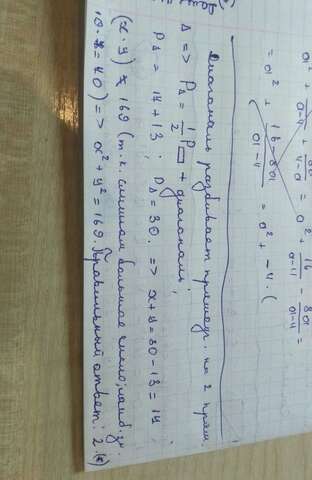 a² + 16/(a-4) + 8a/(4-a) = a² + 16/(a-4) - 8a/(a-4) =
= a² + (16-8a)/(a-4) = a² + -4. (
Диагональ разбивает прямоуг. на 2 прям.
Δ => P△ = 1/2 P▭ + диагональ;
P△ = 17+13; P△ = 30. => x+y = 30-13 = 17;
(x·y) ≠ 169 (т.к. слишком большое число; наиб. зн.
10·4=40) => x²+y² = 169. Правильный ответ: 2.